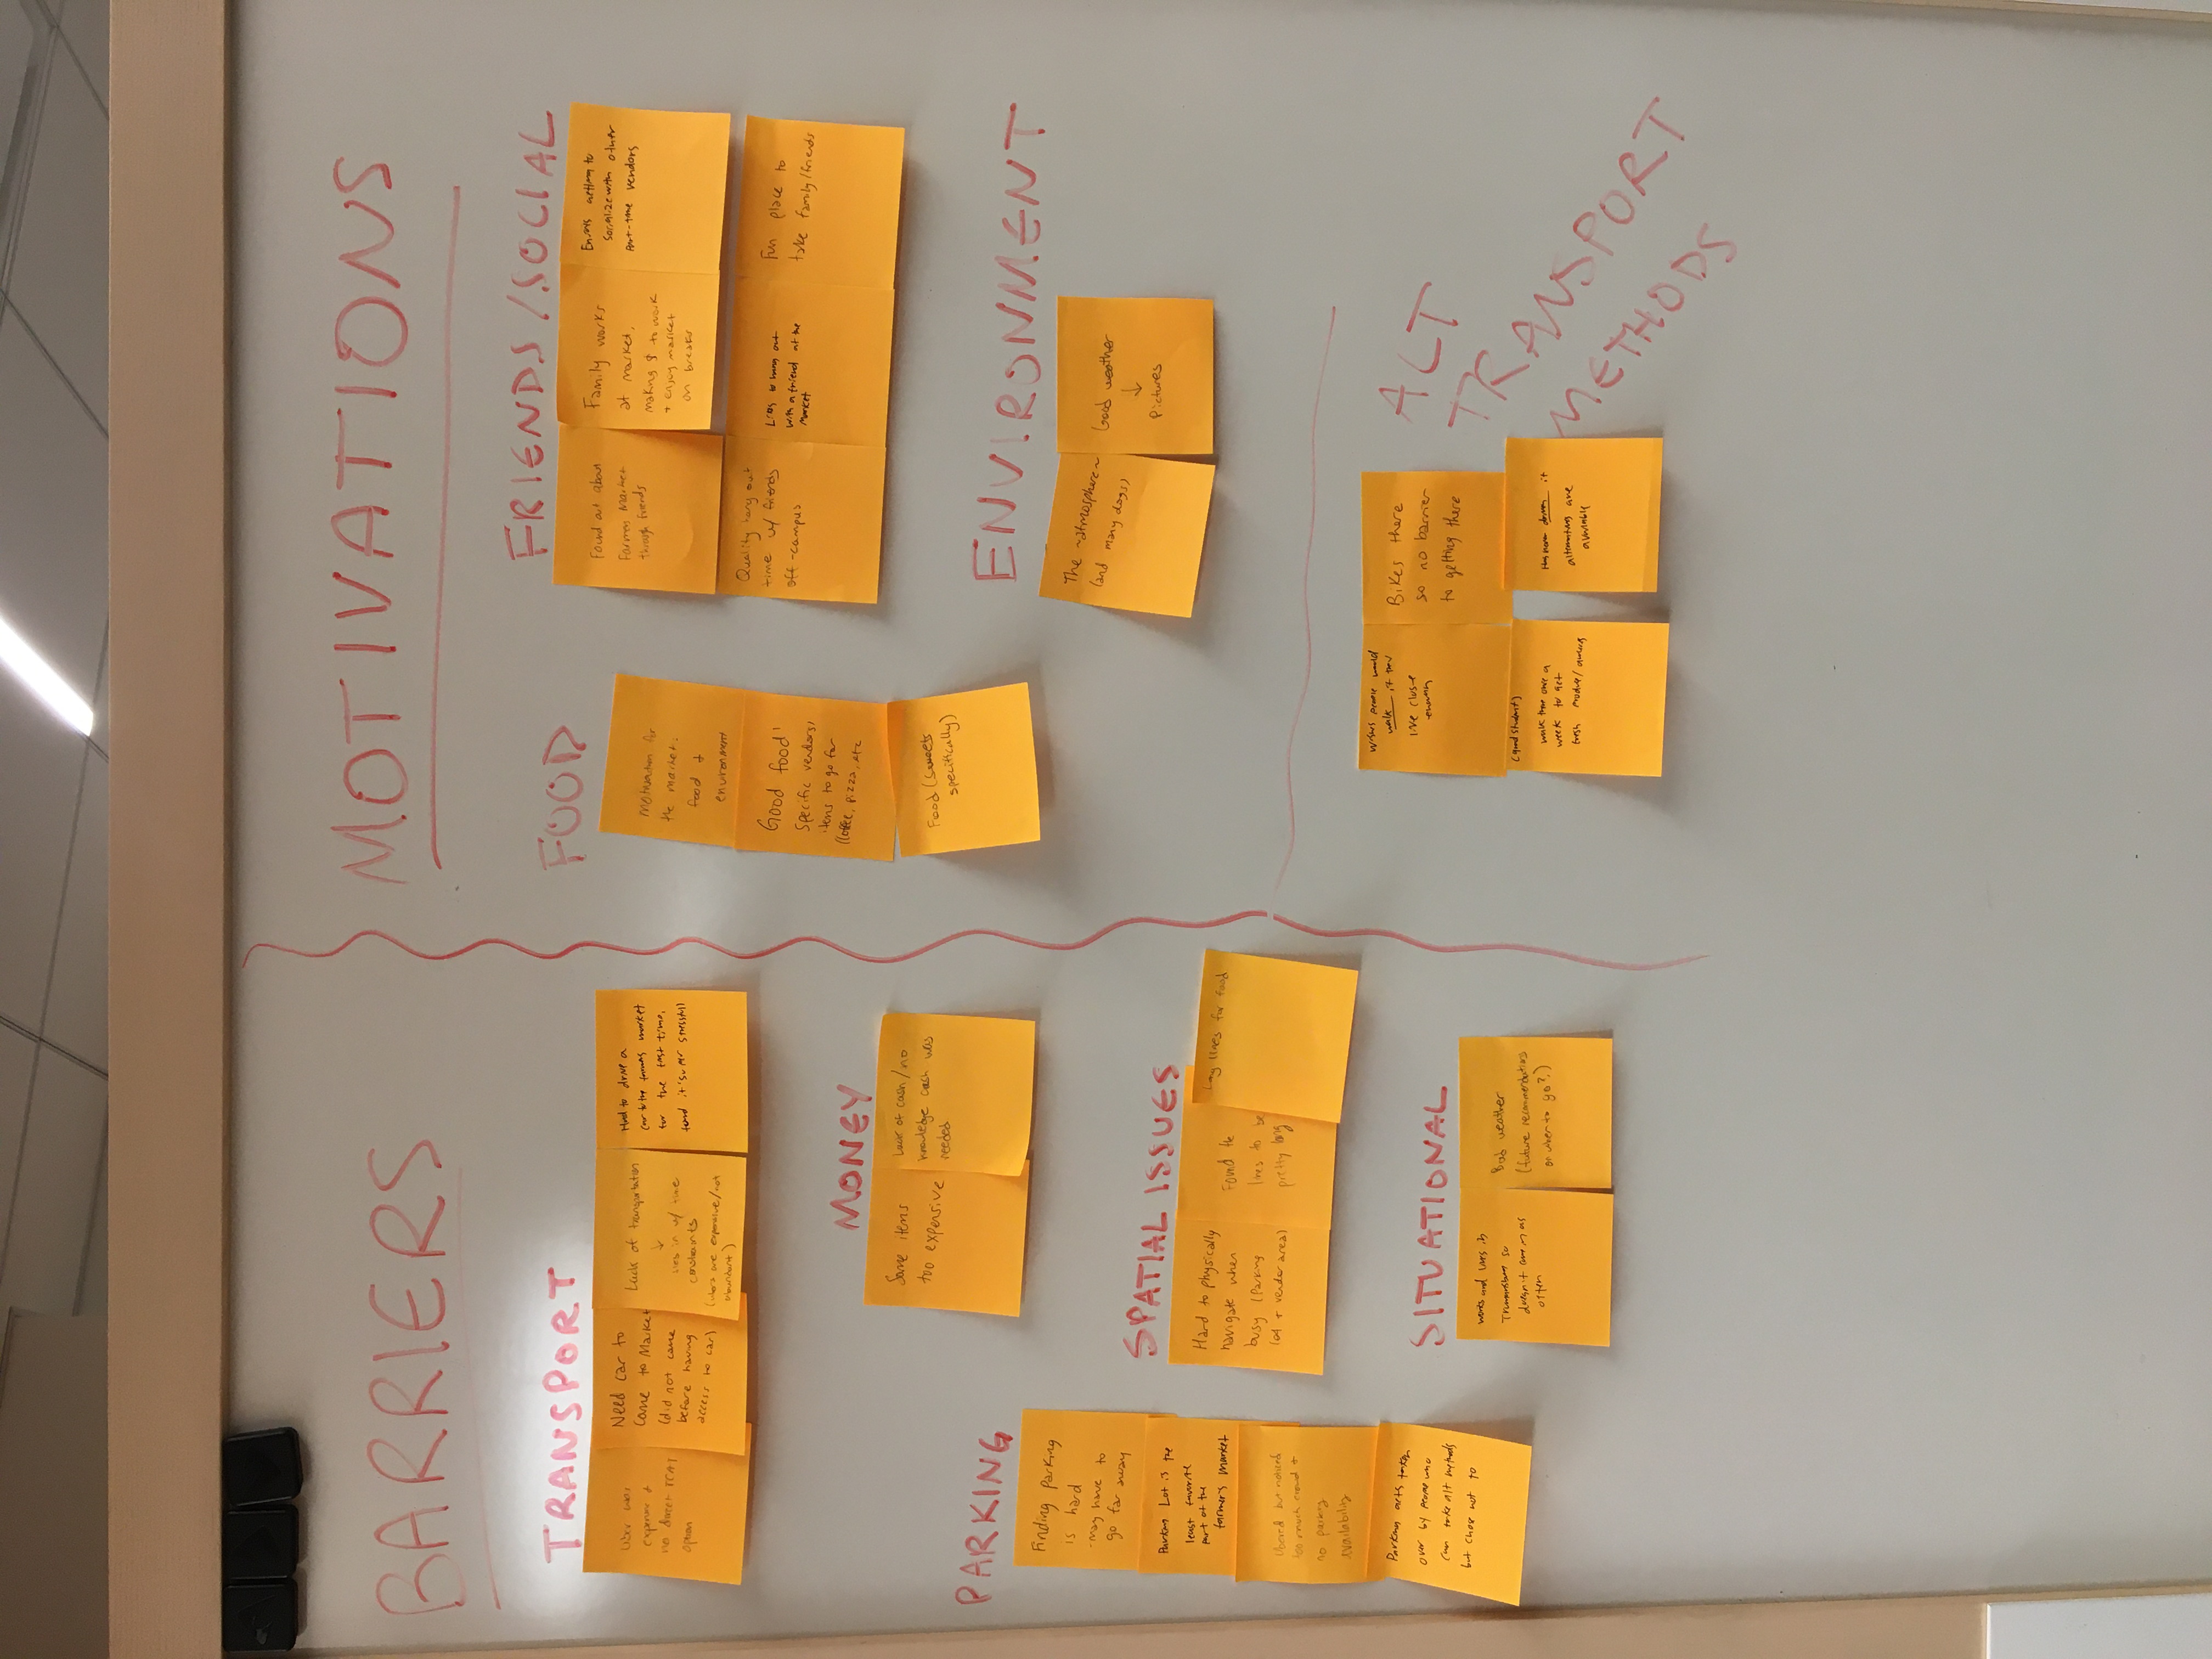 BARRIERS
TRANSPORT
Uber was
expensive &
no direct TCAT
option
Need car to
come to Market
(did not come
before having
access to car)
Lack of transportation
↓
ties in w/ time
constraints
(ubers are expensive/not
abundant)
Had to drive a
car to the farmers market
for the first time,
found it 'super stressful'
MONEY
Some items
too expensive
Lack of cash/no
knowledge cash was
needed
PARKING
Finding parking
is hard
-may have to
go far away
Parking Lot is the
least favorite
part of the
farmer's market
Ubered but noticed
too much crowd &
no parking
availability
Parking gets taken
over by people who
can take alt methods
but chose not to
SPATIAL ISSUES
Hard to physically
navigate when
busy (Parking
lot + vendor area)
Found the
lines to be
pretty long
Long lines for food
SITUATIONAL
works and lives in
Trumansburg so
doesn't come in as
often
Bad weather
(future recommendations
on when to go?)
MOTIVATIONS
FOOD
motivation for
the market:
food &
environment
Good food!
Specific vendors/
items to go for
(Coffee, pizza, etc
Food (sweets
specifically)
FRIENDS/SOCIAL
Found out about
Farmers Market
through friends
Family works
at market,
making $ to work
+ enjoy market
on breaks
Enjoys getting to
socialize with other
part-time vendors
Quality hang out
time w/ friends
off-campus
Likes to hang out
with a friend at the
market
Fun place to
take family/friends
ENVIRONMENT
The ~atmosphere~
(and many dogs)
Good weather
↓
Pictures
ALT
TRANSPORT
METHODS
Wishes people would
walk if they
live close
enough
Bikes there
so no barrier
to getting there
(grad student)
walk there once a
week to get
fresh produce/
Has never driven if
alternatives are
available